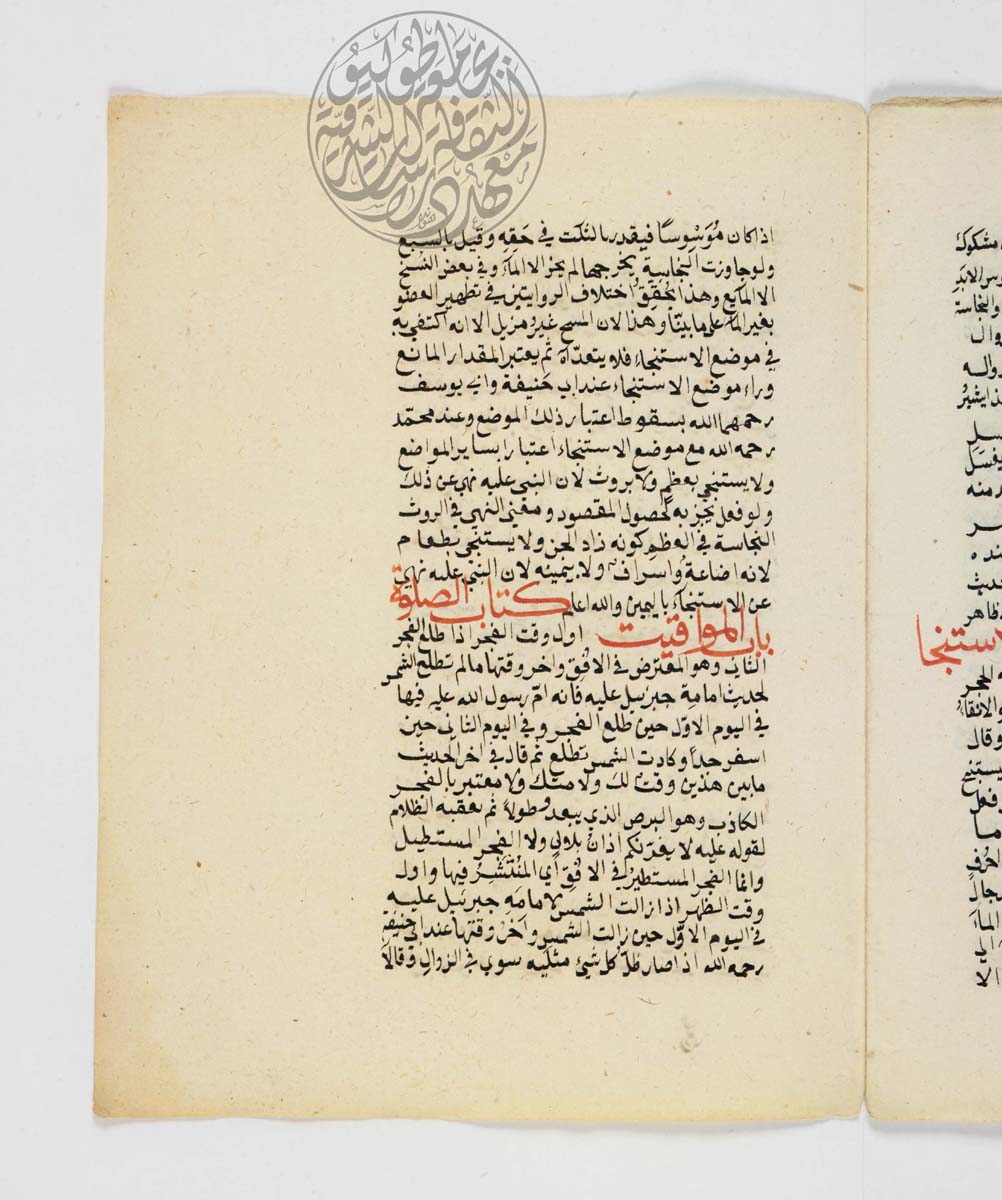 اذا كان مُوَسْوِسًا فيقدر بالثلث في حَقِهِ وقيل بالسبع
ولو جاوزت النجاسة مخرجها لم يجز الا الماء وفي بعض النسخ
الا المايع وهذا يُحَقِقُ اختلاف الروايتين في تطهير العضو
بغير الماء على ما بيّنّا وهذا لان المسح غير مزيل الا انه اكتفي به
في موضع الاستنجاء فلا يتعدّاه ثم يعتبر المقدار المانع
وراء موضع الاستنجاء عند ابي حنيفة وابي يوسف
رحمهما الله بسقوط اعتبار ذلك الموضع وعند محمّد
رحمه الله مع موضع الاستنجاء اعتبارا بساير المواضع
ولا يستنجي بعظمٍ ولا بروث لان النبي عليه نهي عن ذلك
ولو فعل يجزيه لحصول المقصود ومعني النهي في الروث
النجاسة في العظم كونه زاد الجن ولا يستنجي بطعام
لانه اضاعة واسراف ولا بيمينه لان النبي عليه نهي
عن الاستنجاء باليمين والله اعلم كتاب الصلوة
باب المواقيت اول وقت الفجر اذا طلع الفجر
الثاني وهو المعترض في الافق واخر وقتها ما لم تطلع الشمس
لحديث امامة جبرئيل عليه فانه امّ رسول الله عليه فيها
في اليوم الاوّل حين طلع الفجر وفي اليوم الثاني حين
اسفر جداً وكادت الشمس تطلع ثم قال في اخر الحديث
ما بين هذين وقت لك ولامتك ولا معتبر بالفجر
الكاذب وهو البرص الذي يبعد وطولاً ثم يعقبه الظلام
لقوله عليه لا يغرّنكم اذان بلال ولا الفجر المستطيل
وانما الفجر المستطير في الافق أي المُنْتَشِرُ فيها واول
وقت الظهر اذا زالت الشمس لامامة جبرئيل عليه
في اليوم الاوّل حين زالت الشمس وآخر وقتها عند ابي حنيفة
رحمه الله اذا صار ظلّ كل شيئ مثليه سوي في الزوال وقالا
مشكوك
والنجاسة
منه
الحجر
وقال
فعل
ما
الماء
الا